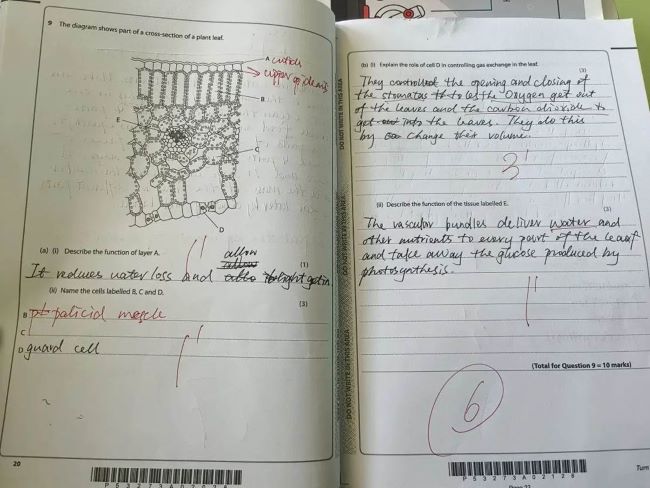 9 The diagram shows part of a cross-section of a plant leaf.
A cuticle
upper epidermis
B
E
C
D
(a) (i) Describe the function of layer A.
(1)
allow
It reduces water loss and light get in
(ii) Name the cells labelled B, C and D.
(3)
B
C
D guard cell
1
1
20
P 5 3 2 7 3 A 0 2 0 2 8
DO NOT WRITE IN THIS AREA
DO NOT WRITE IN THIS AREA
DO NOT WRITE IN THIS AREA
(b) (i) Explain the role of cell D in controlling gas exchange in the leaf.
(3)
They the opening and closing of
the stomates to let the Oxygen get out
of the leaves and the carbon dioxide to
get into the leaves. They do this
by change their volume.
3
(ii) Describe the function of the tissue labelled E.
(3)
The vascular bundles deliver water and
other nutrients to every part of the leaf
and take away the glucose produced by
photosynthesis.
1
(Total for Question 9 = 10 marks)
6
P 5 3 2 7 3 A 0 2 1 2 8
Turn